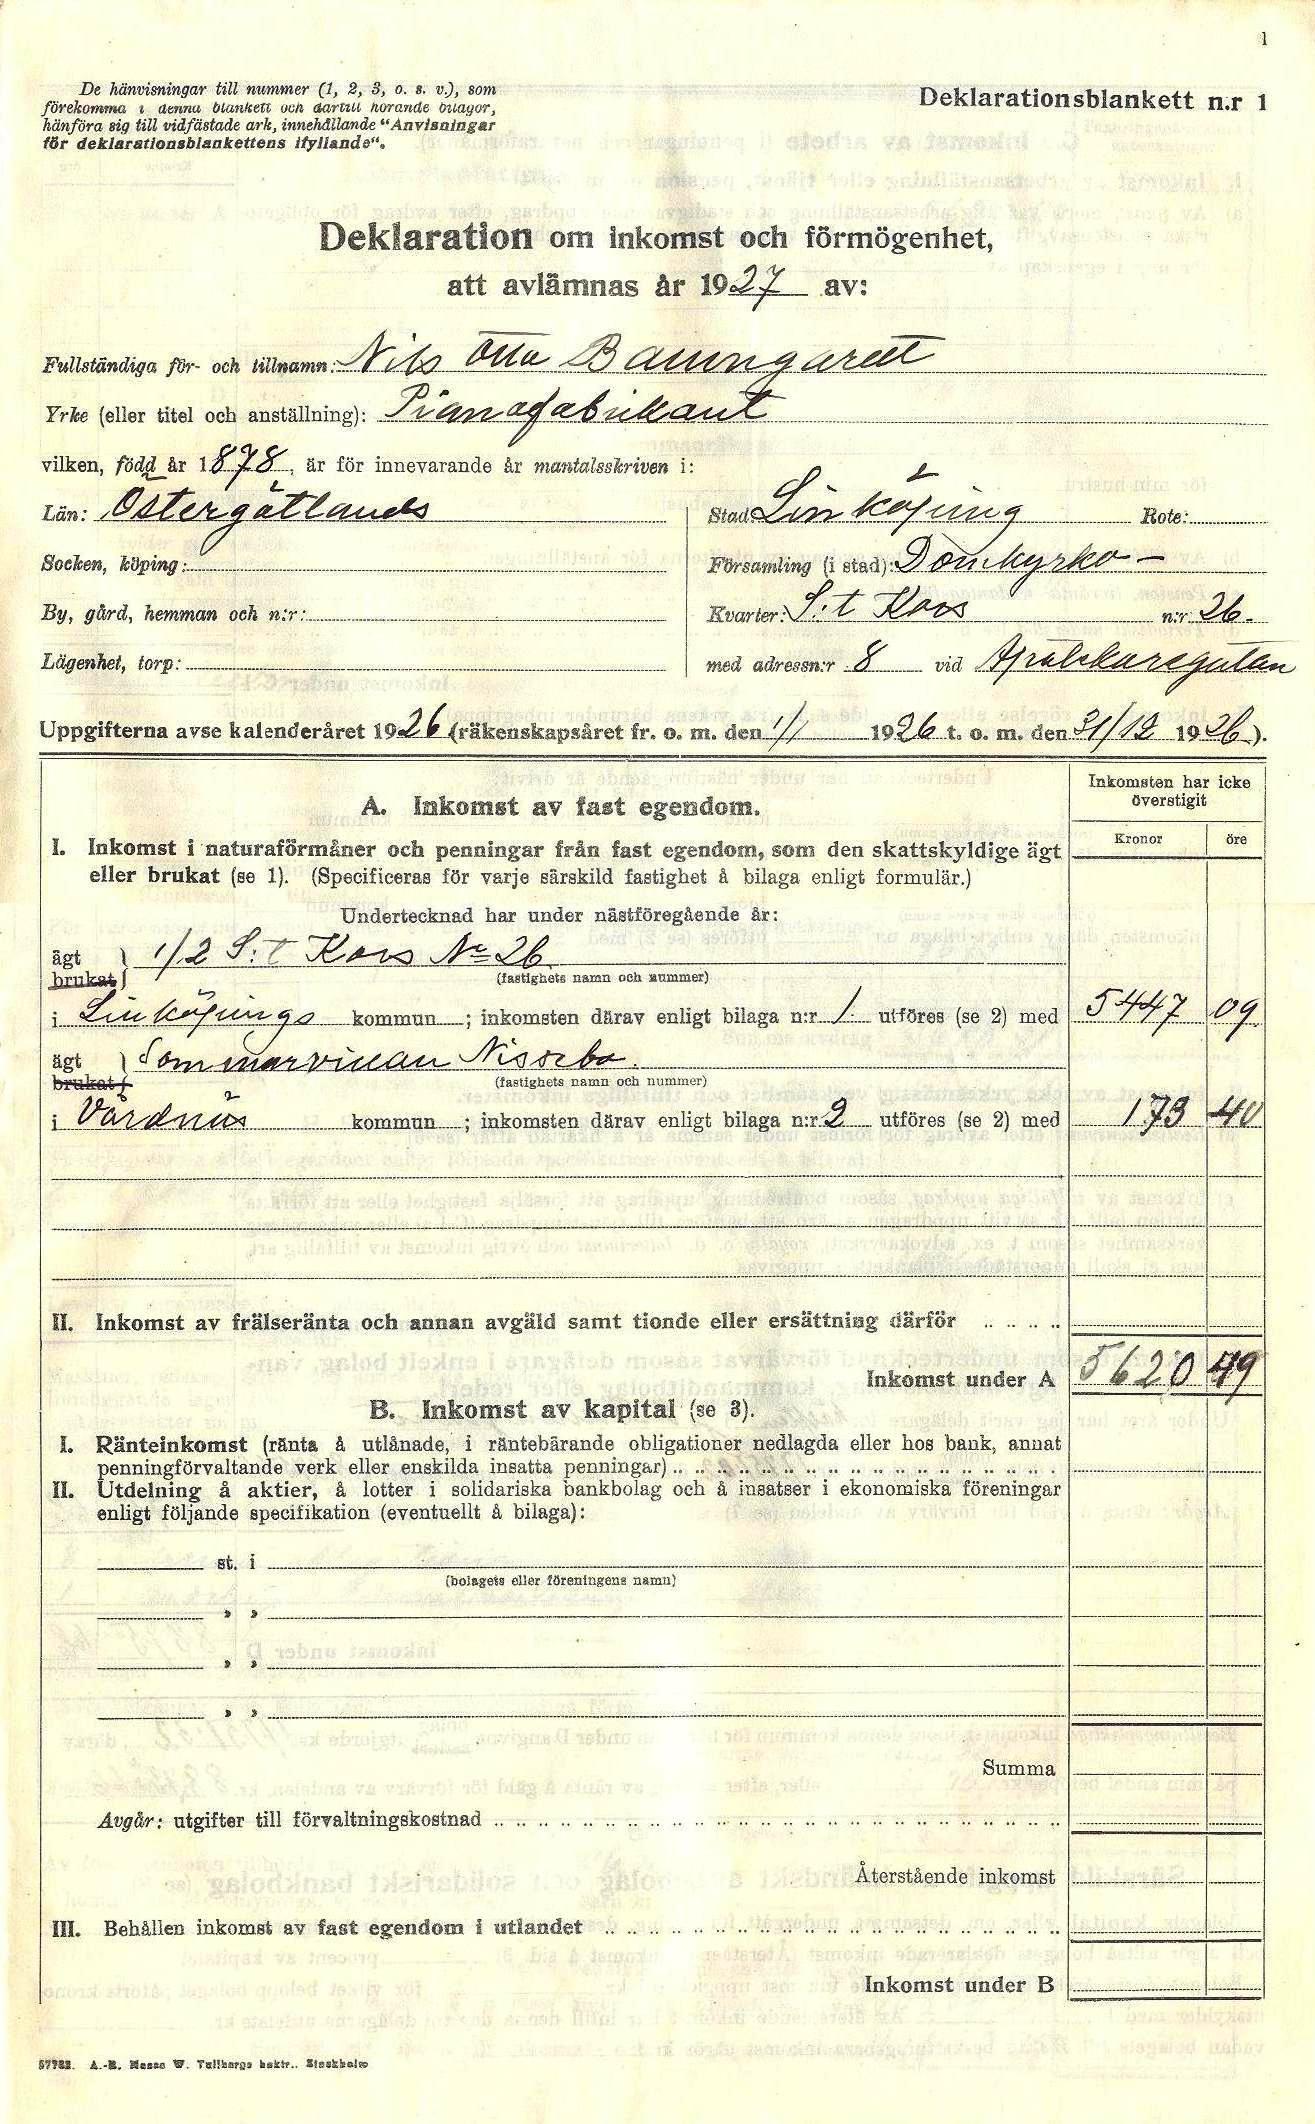 1
De hänvisningar till nummer (1, 2, 3, o. s. v.), som
förekomma i denna blankett och därtill hörande bilagor,
hänföra sig till vidfästade ark, innehållande "Anvisningar
för deklarationsblankettens ifyllande".
Deklarationsblankett n.r 1
Deklaration om inkomst och förmögenhet,
att avlämnas år 1927 av:
Fullständiga för- och tillnamn: Nils Otto Baumgardt
Yrke (eller titel och anställning): Pianofabrikant
vilken, född år 1878, är för innevarande år mantalsskriven i:
Län: Östergötlands
Stad: Linköping Rote:
Socken, köping:
Församling (i stad): Domkyrko-
By, gård, hemman och n:r:
Kvarter: S:t Kors n:r 26.
Lägenhet, torp:
med adressn:r 8 vid Apotekaregatan
Uppgifterna avse kalenderåret 1926 (räkenskapsåret fr. o. m. den 1/1 1926 t. o. m. den 31/12 1926).
Inkomsten har icke
överstigit
Kronor öre
A. Inkomst av fast egendom.
I. Inkomst i naturaförmåner och penningar från fast egendom, som den skattskyldige ägt
eller brukat (se 1). (Specificeras för varje särskild fastighet å bilaga enligt formulär.)
Undertecknad har under nästföregående år:
ägt
brukat } 1/2 S:t Kors No 26
(fastighets namn och nummer)
i Linköpings kommun; inkomsten därav enligt bilaga n:r 1 utföres (se 2) med 5447 09
ägt
brukat } Sommarvillan Nissebo.
(fastighets namn och nummer)
i Vårdnäs kommun; inkomsten därav enligt bilaga n:r 2 utföres (se 2) med 173 40
II. Inkomst av frälseränta och annan avgäld samt tionde eller ersättning därför .. .. .. ..
Inkomst under A 5620 49
B. Inkomst av kapital (se 3).
I. Ränteinkomst (ränta å utlånade, i räntebärande obligationer nedlagda eller hos bank, annat
penningförvaltande verk eller enskilda insatta penningar) .. .. .. .. .. .. .. .. .. .. .. .. .. .. .. .. .. .
II. Utdelning å aktier, å lotter i solidariska bankbolag och å insatser i ekonomiska föreningar
enligt följande specifikation (eventuellt å bilaga):
st. i
(bolagets eller föreningens namn)
" "
" "
" "
Summa
Avgår: utgifter till förvaltningskostnad .. .. .. .. .. .. .. .. .. .. .. .. .. .. .. .. .. .. .. .. .. .. .. .. .. ..
Återstående inkomst
III. Behållen inkomst av fast egendom i utlandet .. .. .. .. .. .. .. .. .. .. .. .. .. .. .. .. .. .. .. .. ..
Inkomst under B
A.-B. Hasse W. Tullbergs boktr., Stockholm